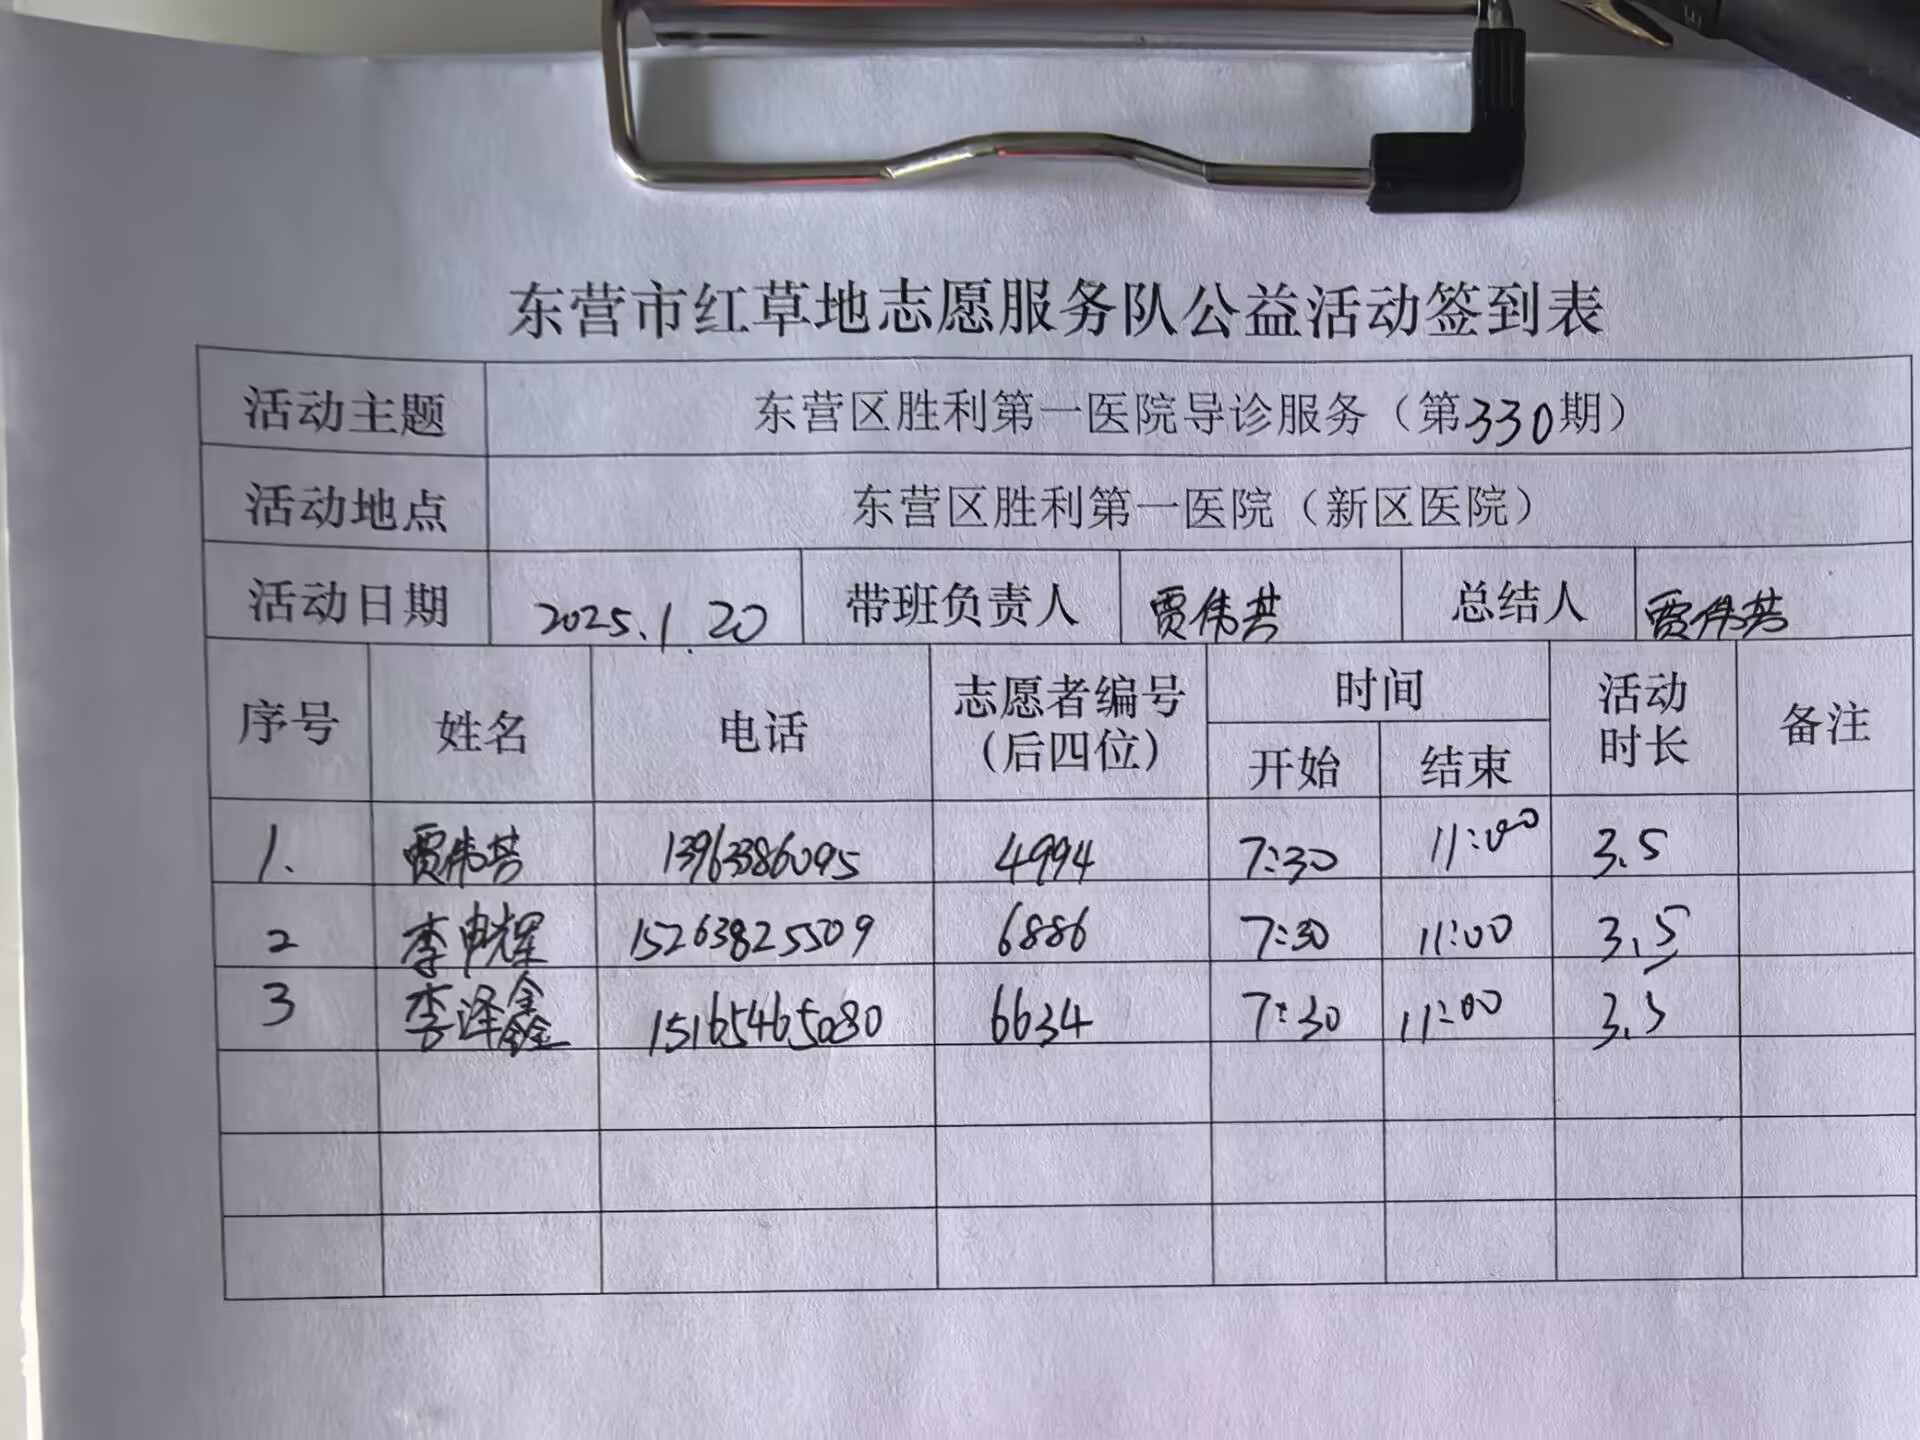 东营市红草地志愿服务队公益活动签到表
活动主题 东营区胜利第一医院导诊服务（第330期）
活动地点 东营区胜利第一医院（新区医院）
活动日期 2025.1.20 带班负责人 贾伟芸 总结人 贾伟芸
序号 姓名 电话 志愿者编号（后四位） 时间 活动时长 备注
开始 结束
1. 贾伟芸 13963386095 4994 7:30 11:00 3.5
2 李申辉 15263825509 6886 7:30 11:00 3.5
3 李泽鑫 15165465080 6634 7:30 11:00 3.5